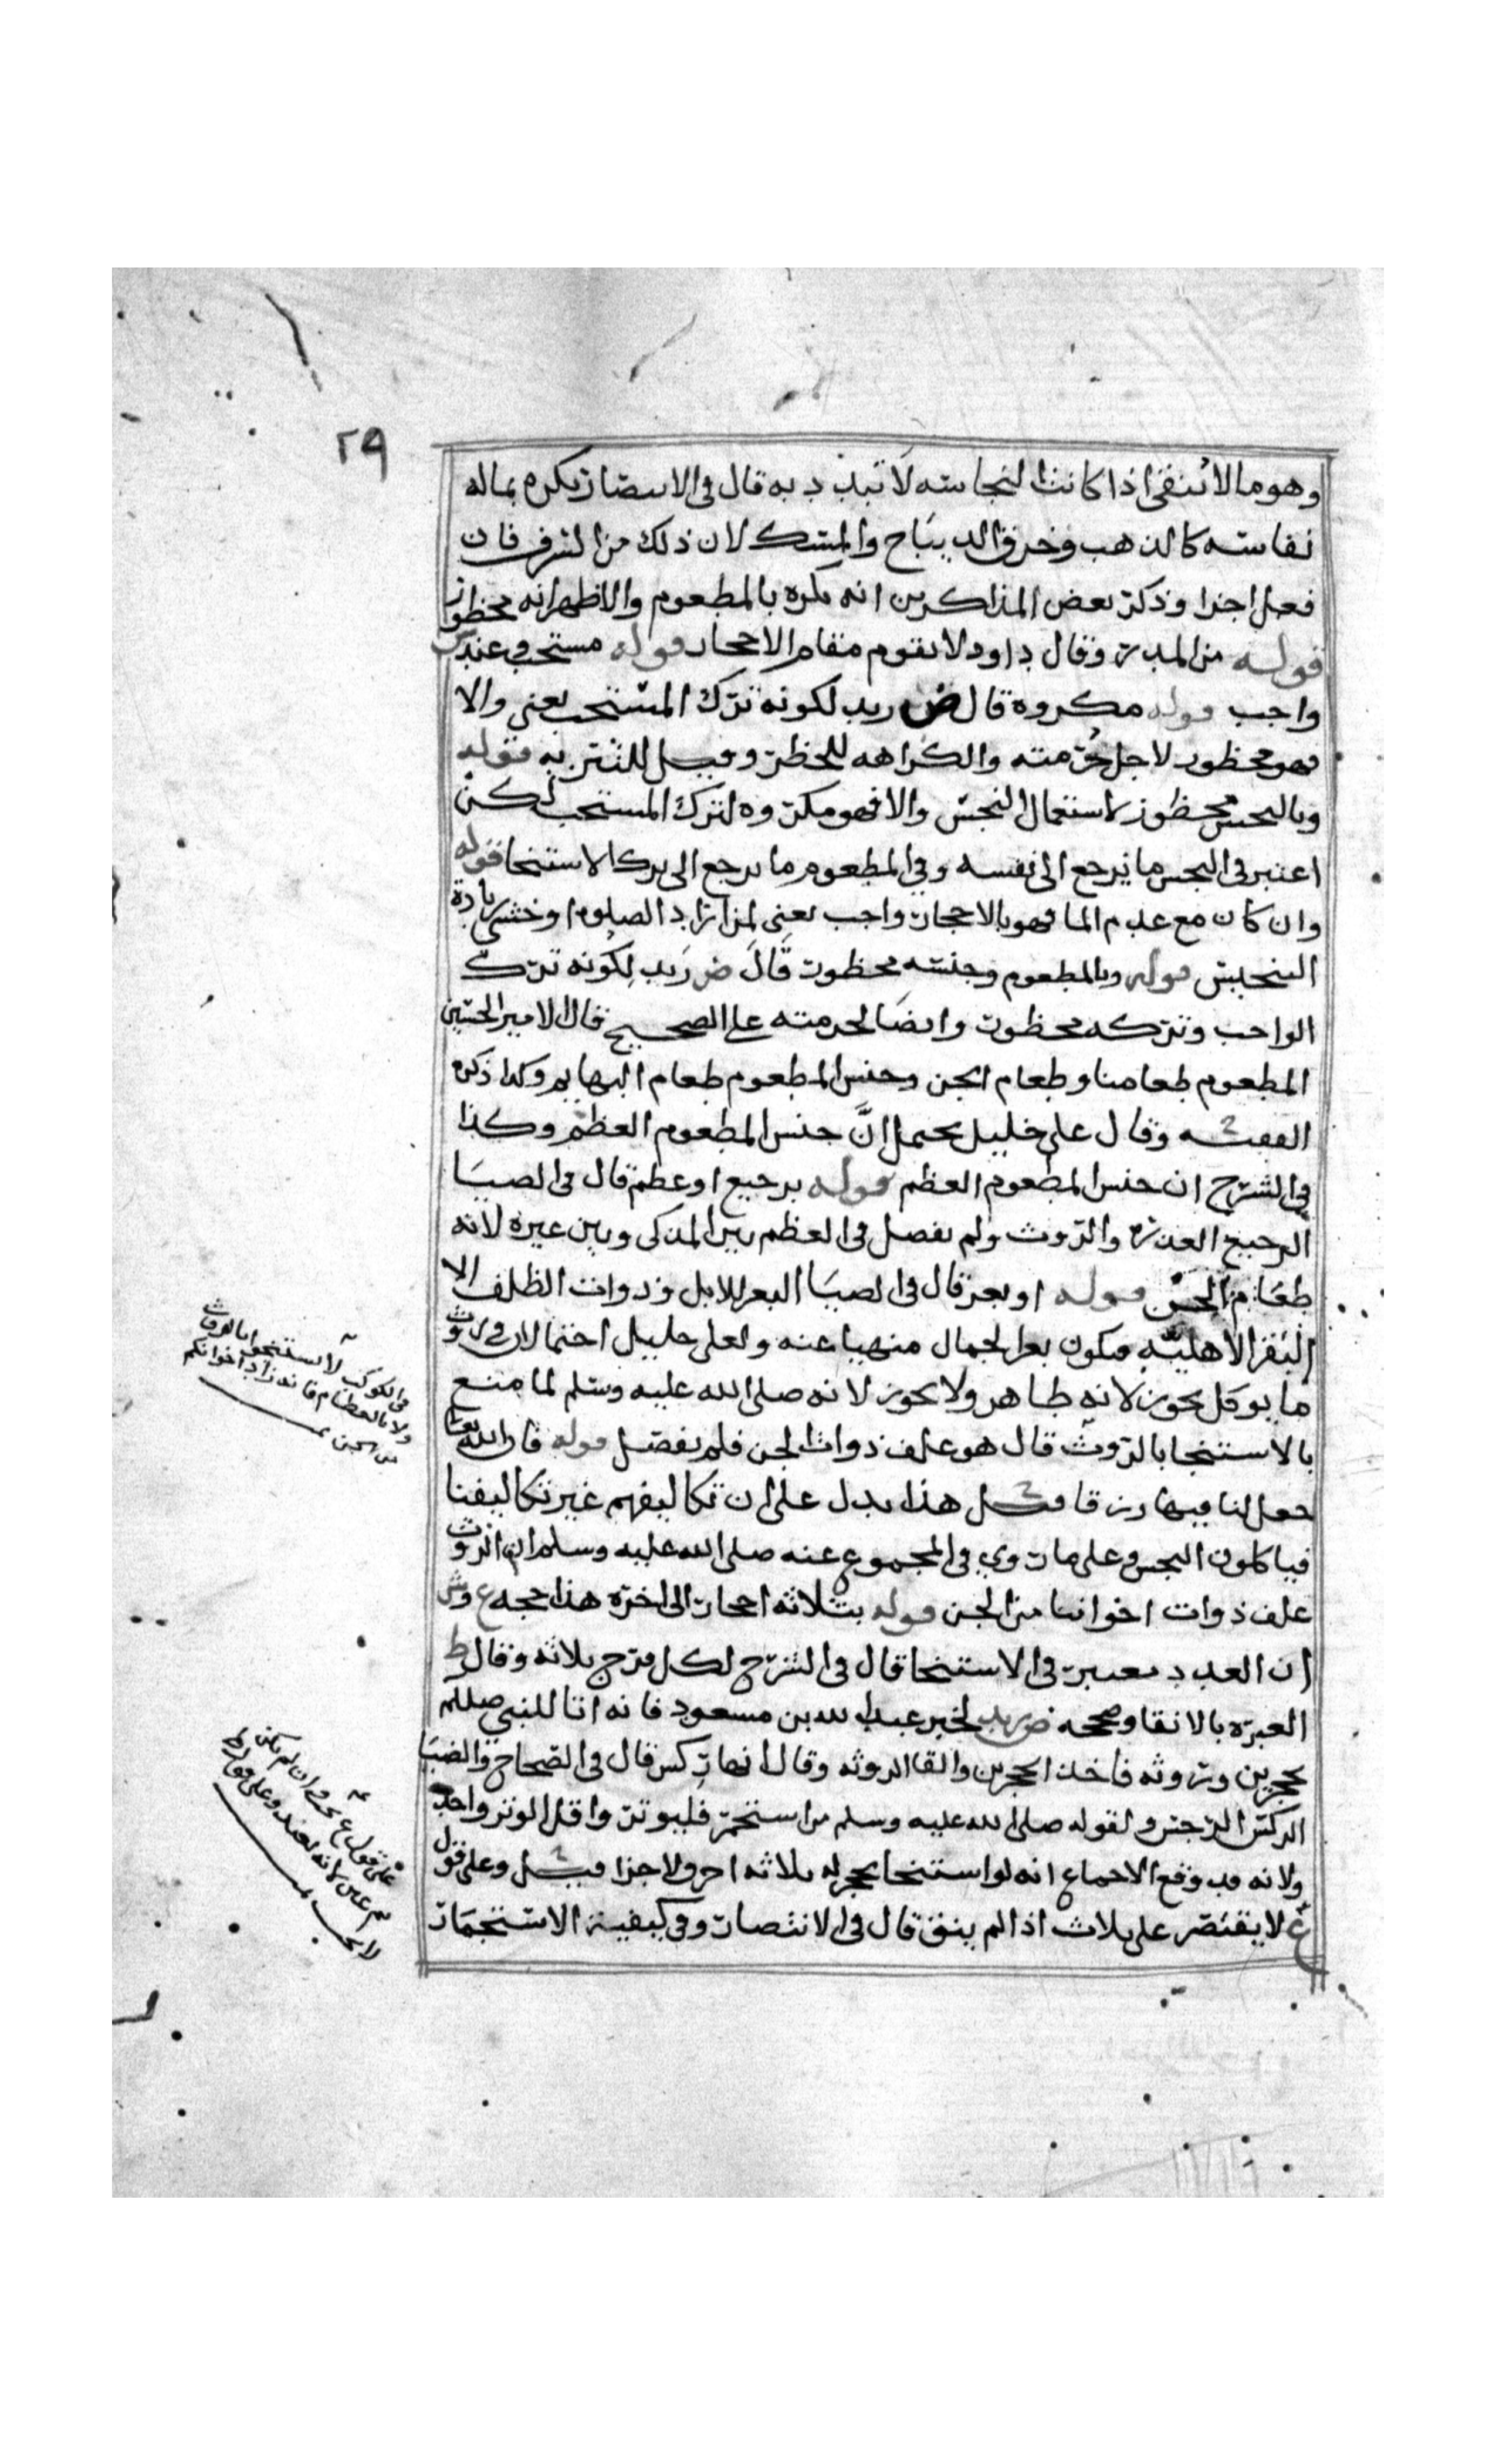 ٢٩
وهو ما لا ينقي اذا كانت النجاسه لا تبدد به قال في الانتصار يكره بماله
نفاسته كالذهب وخرق الديباج والمسك لان ذلك من السرف فان
فعل اجزا وذكر بعض المذاكرين انه يكره بالمطعوم والاظهر انه محظور
قوله من المدر وقال داود لا يقوم مقام الاحجار قوله مستحب وعند ك
واجب قوله مكروه قال ض زيد لكونه ترك المستحب يعني والا
فهو محظور لاجل حرمته والكراهه للحظر وقيل للتنزيه قوله
وبالنجس محظور لاستعمال النجس والا فهو مكروه لترك المستحب لكن
اعتبر في النجس ما يرجع الى نفسه وفي المطعوم ما يرجع الى ترك الاستنجا قوله
وان كان مع عدم الما فهو بالاحجار واجب يعني لمن اراد الصلوه او خشي زيادة
التنجيس قوله وبالمطعوم وجنسه محظور قال ض زيد لكونه ترك
الواجب وتركه محظور وايضا لحرمته على الصحيح قال الامير الحسين
المطعوم طعامنا وطعام الجن وجنس المطعوم طعام البهايم وكذا ذكره
الفقيه وقال علي خليل يحتمل ان جنس المطعوم العظم وكذا
في الشرح ان جنس المطعوم العظم قوله برجيع او عظم قال في الضيا
الرجيع العذره والروث ولم يفصل في العظم بين المذكى وبين غيره لانه
طعام الجن قوله او بعر قال في الضيا البعر للابل وذوات الظلف الا
البقر الاهليه فيكون بعر الجمال منهيا عنه ولعلي خليل احتمالان في روث
ما يوكل يجوز لانه طاهر ولا يجوز لانه صلى الله عليه وسلم لما منع
بالاستنجا بالروث قال هو علف ذوات الجن فلم يفصل قوله قال الله تعالى
جعل لنا فيها رزقا هذا يدل على ان تكاليفهم غير تكاليفنا
فياكلون النجس وعلى ما روي في المجموع عنه صلى الله عليه وسلم ان الروث
علف ذوات اخواننا من الجن قوله بثلاثه احجار الى اخره هذا حجه ع وش
ان العدد معتبر في الاستنجا قال في الشرح لكل فرج ثلاثه وقال ط
العبره بالانقا وصححه ض زيد لخبر عبد الله بن مسعود فانه اتا للنبي صللم
بحجرين وروثه فاخذ الحجرين والقا الروثه وقال انها ركس قال في الصحاح والضيا
الركس الرجس ولقوله صلى الله عليه وسلم من استجمر فليوتر واقل الوتر واحد
ولانه قد وقع الاجماع انه لو استنجا بحجر له ثلاثه احرف لاجزا وعلى قول
ع لا يقتصر على ثلاث اذا لم ينق قال في الانتصار وفي كيفية الاستجمار
في الكوكب لا تستنجوا بالروث
ولا بالعظام فانه زاد اخوانكم
من الجن
على قول ع يجزي وان لم يكن